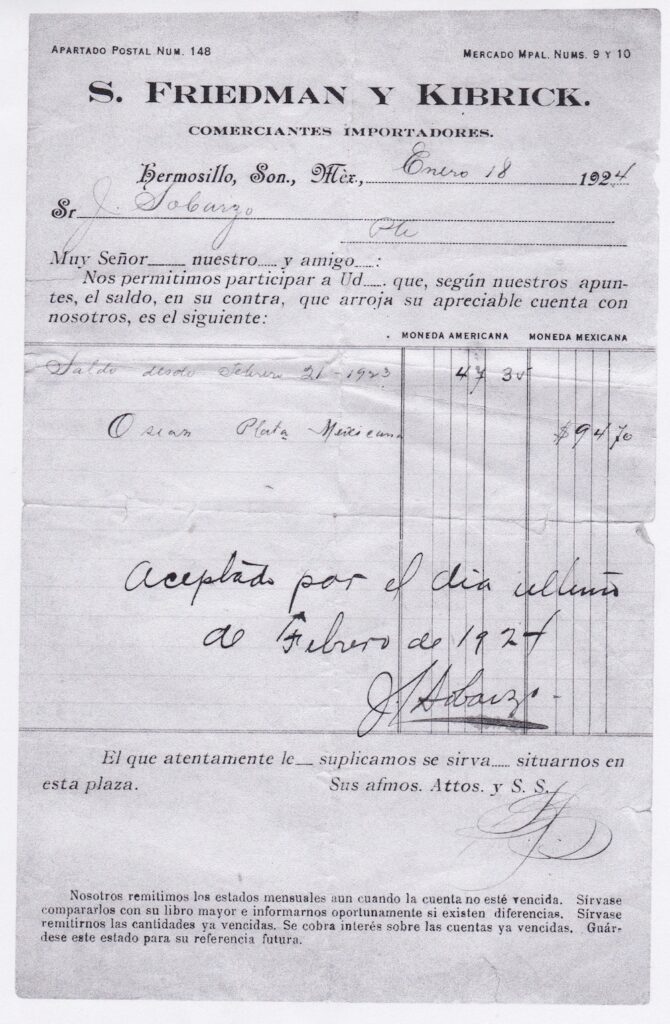 APARTADO POSTAL NUM. 148
MERCADO MPAL. NUMS. 9 Y 10
S. FRIEDMAN Y KIBRICK.
COMERCIANTES IMPORTADORES.
Hermosillo, Son., Mèx., Enero 18 1924
Sr J. Sobarzo
Pte
Muy Señor nuestro y amigo :
Nos permitimos participar a Ud . que, según nuestros apun-
tes, el saldo, en su contra, que arroja su apreciable cuenta con
nosotros, es el siguiente:
MONEDA AMERICANA MONEDA MEXICANA
Saldo desde Febrero 21-1923 47 35
O sean Plata Mexicana $94 70
Aceptado por el dia ultimo
de Febrero de 1924
J. Sobarzo
El que atentamente le suplicamos se sirva situarnos en
esta plaza. Sus afmos. Attos. y S. S.
Nosotros remitimos los estados mensuales aun cuando la cuenta no esté vencida. Sírvase
compararlos con su libro mayor e informarnos oportunamente si existen diferencias. Sírvase
remitirnos las cantidades ya vencidas. Se cobra interés sobre las cuentas ya vencidas. Guár-
dese este estado para su referencia futura.